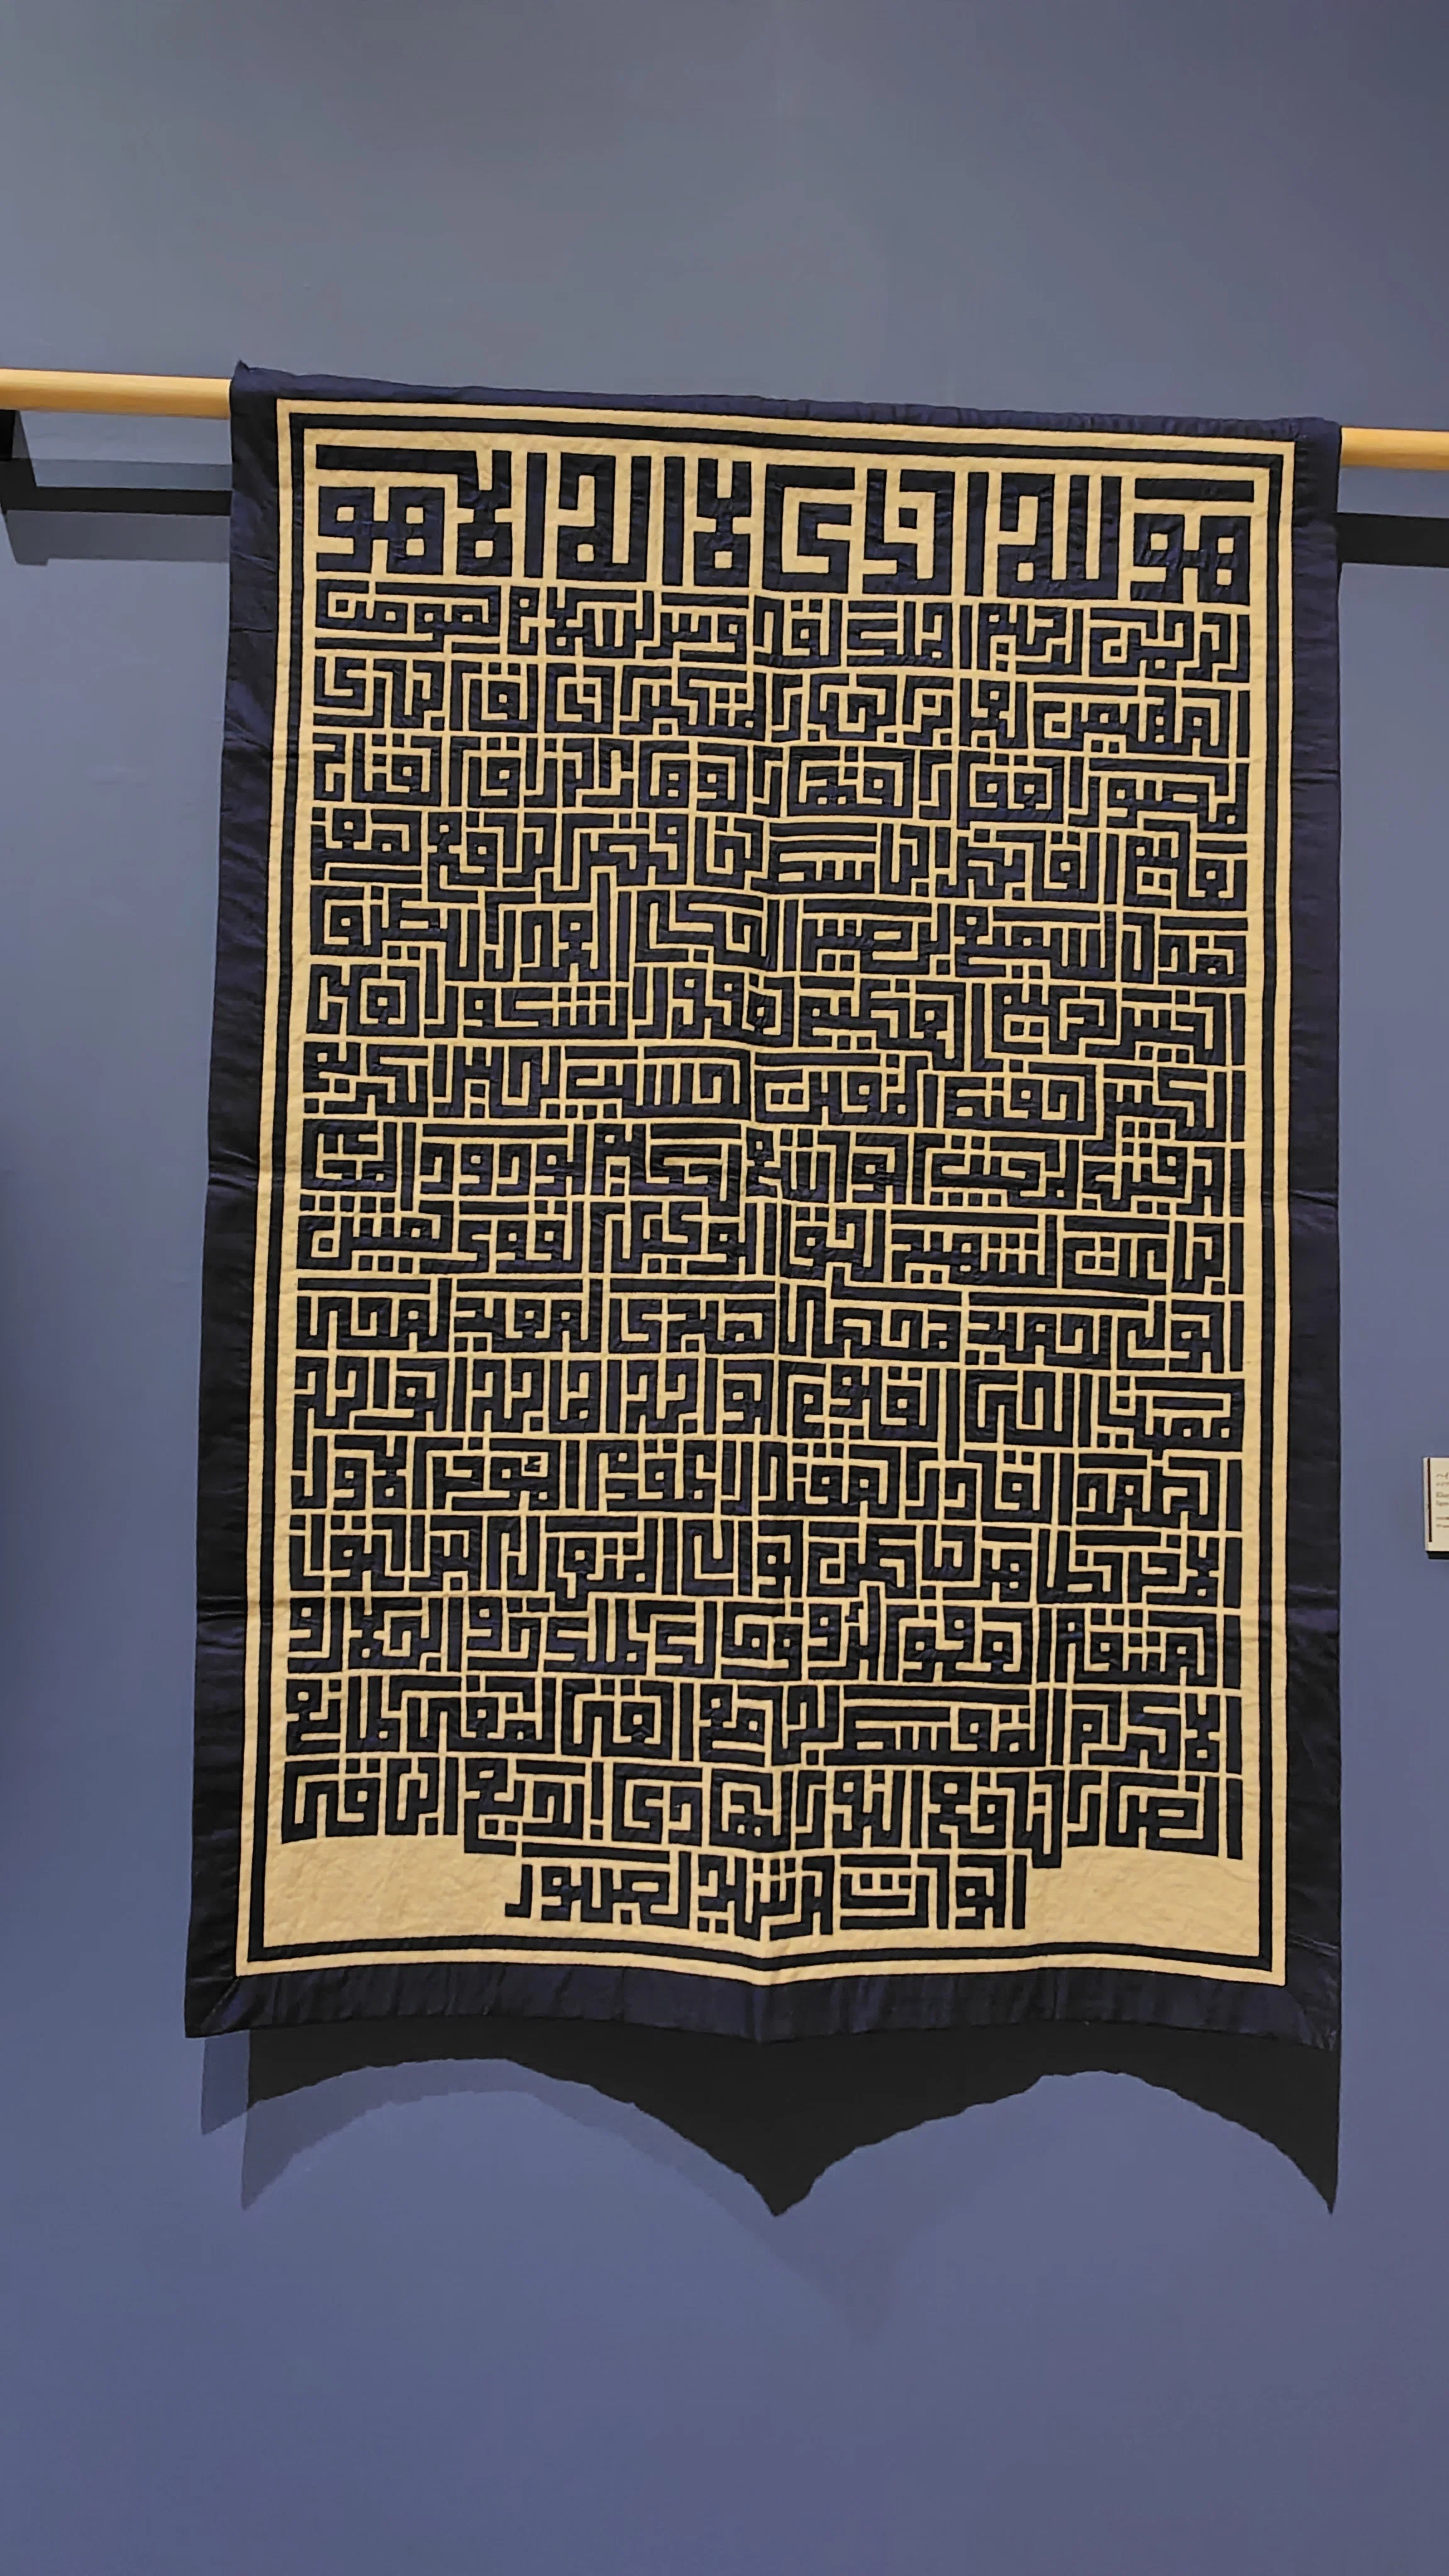 هو الله الذي لا اله الا هو
الرحمن الرحيم الملك القدوس السلام المؤمن
المهيمن العزيز الجبار المتكبر الخالق البارئ
المصور الغفار القهار الوهاب الرزاق الفتاح
العليم القابض الباسط الخافض الرافع المعز
المذل السميع البصير الحكم العدل اللطيف
الخبير الحليم العظيم الغفور الشكور العلي
الكبير الحفيظ المقيت الحسيب الجليل الكريم
الرقيب المجيب الواسع الحكيم الودود المجيد
الباعث الشهيد الحق الوكيل القوي المتين
الولي الحميد المحصي المبدئ المعيد المحيي
المميت الحي القيوم الواجد الماجد الواحد
الصمد القادر المقتدر المقدم المؤخر الاول
الاخر الظاهر الباطن الوالي المتعالي البر التواب
المنتقم العفو الرؤوف مالك الملك ذو الجلال و
الاكرام المقسط الجامع الغني المغني المانع
الضار النافع النور الهادي البديع الباقي
الوارث الرشيد الصبور